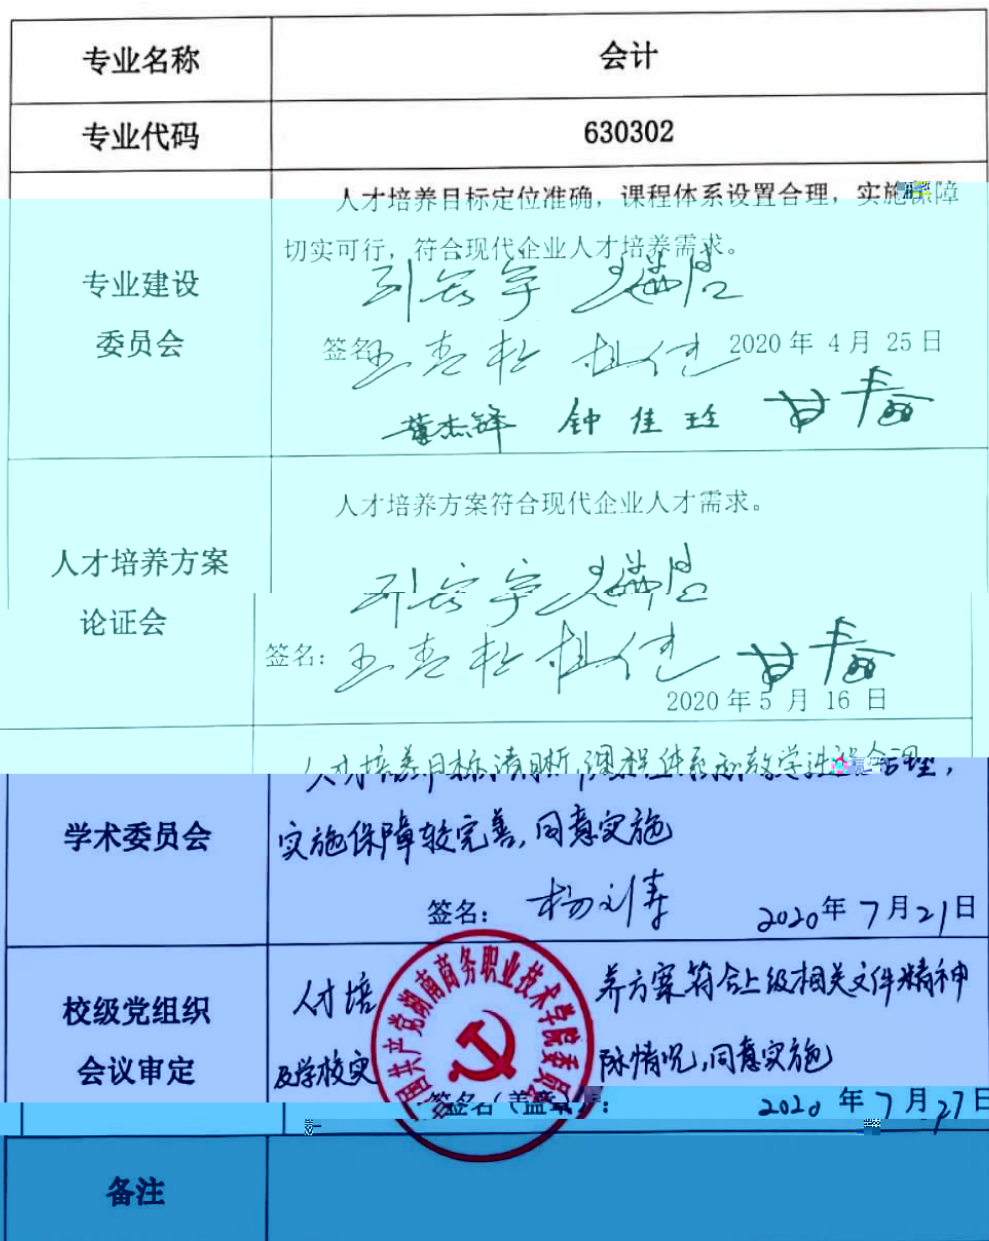 专业名称
会计
专业代码
630302
专业建设
委员会
人才培养目标定位准确，课程体系设置合理，实施保障
切实可行，符合现代企业人才培养需求。
签名
2020 年 4 月 25 日
钟佳
人才培养方案
论证会
人才培养方案符合现代企业人才需求。
签名：
2020 年 5 月 16 日
学术委员会
人才培养目标清晰，课程体系和教学进程合理，
实施保障较完善，同意实施
签名：
2020年7月21日
校级党组织
会议审定
人才培养方案符合上级相关文件精神
及学校实际情况，同意实施
中国共产党湖南商务职业技术学院委员会
签名（盖章）：
2020年7月27日
备注